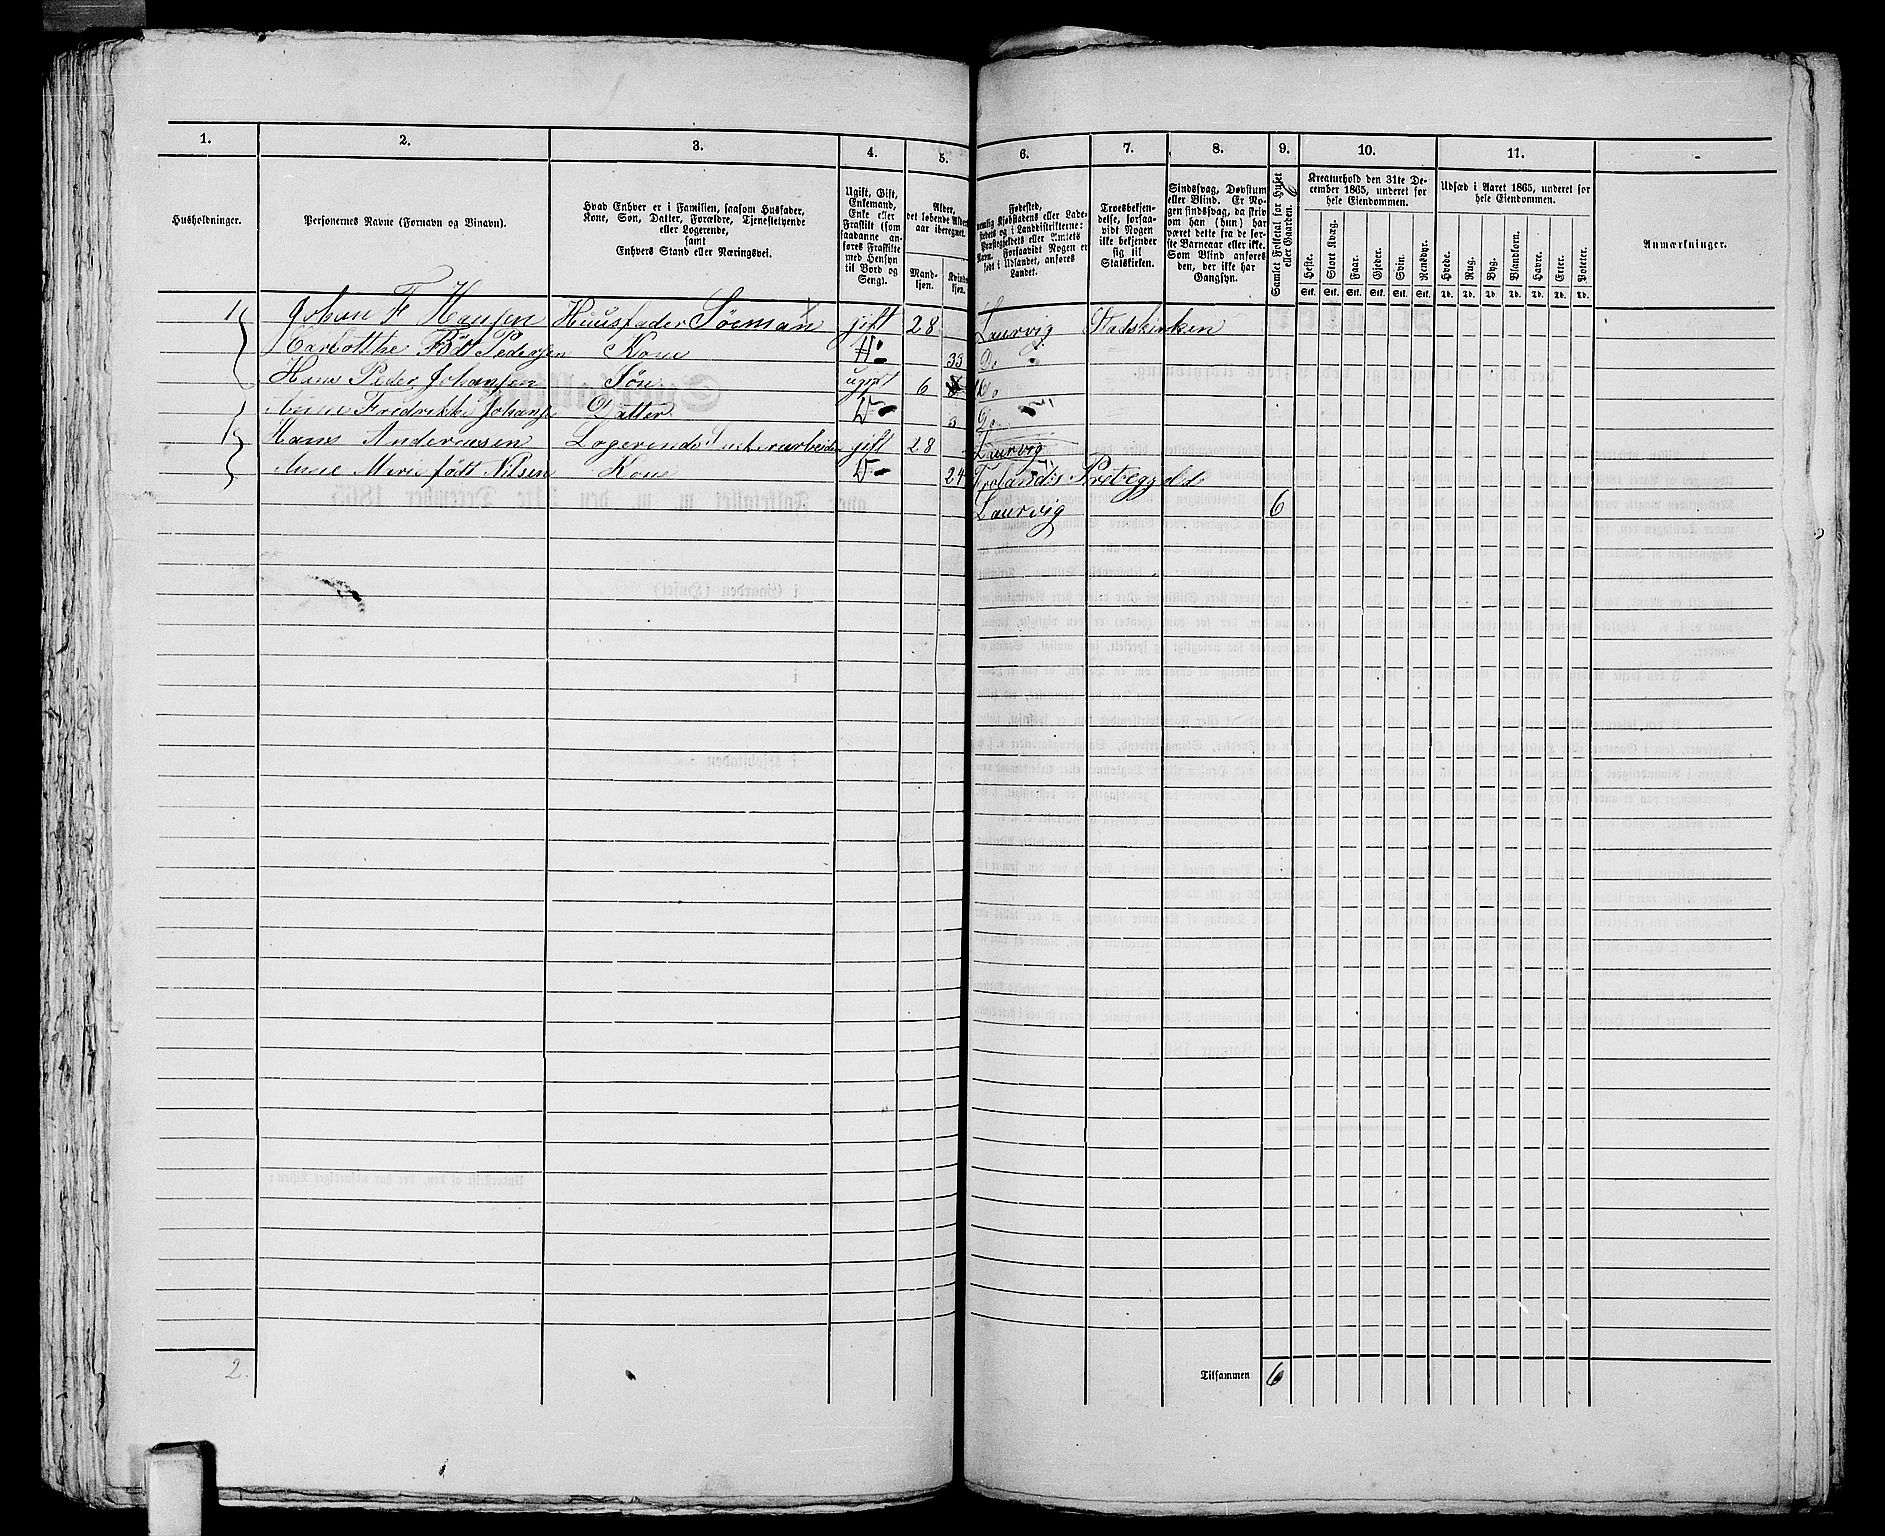 1. 2. 3. 4. 5. 6. 7. 8. 9. 10. 11.
Husholdninger.
Personernes Navne (Fornavn og Tilnavn).
Hvad Enhver er i Familien, saasom Husfader,
Kone, Søn, Datter, Forældre, Tjenestetyende
eller Logerende,
samt
Enhvers Stand eller Næringsvei.
Ugift, Gift,
Enkemand,
Enke eller
Fraskilte (som
saadanne an-
føres Fraskilte
med Hensyn
til Bord og
Seng).
Alder,
det løbende Alders-
aar iberegnet.
Mand-
kjøn.
Kvinde-
kjøn.
Fødested,
nemlig Kjøbstadens eller Lade-
stedets og i Landdistrikterne:
Præstegjeldets eller Amtets
Navn. Forsaavidt Nogen er
født i Udlandet, anføres
Landet.
Troesbekjen-
delse, forsaa-
vidt Nogen
ikke bekjender
sig til
Statskirken.
Sindssvag, Døvstum
eller Blind. Er No-
gen sindssvag, da skriv
om han (hun) har
været dette fra de før-
ste Barneaar eller ikke.
Som Blind anføres
den, der ikke har
Gangsyn.
Samlet Folketal for Huset
eller Gaarden. 6
Kreaturhold den 31te De-
cember 1865, underet for
hele Eiendommen.
Heste. Stort Kvæg. Faar. Gjeder. Svin. Rensdyr.
Stk. Stk. Stk. Stk. Stk. Stk.
Udsæd i Aaret 1865, underet for
hele Eiendommen.
Hvede. Rug. Byg. Blandkorn. Havre. Erter. Poteter.
Td. Td. Td. Td. Td. Td. Td.
Anmærkninger.
1 Johan F Hansen Huusfader Søeman gift 28 Laurvig Stadskirken
Pedersen Kone 33 Do
Hans Peder Johansen Søn ugift 6 Do
Anne Fredrikke Johans Datter Do 3 Do
1 Hans Andersen Logerende gift 28 Laurvig
Anne Marie født Nilsen Kone Do 24 Frolands Prestegjeld
Laurvig 6
2.
Tilsammen 6